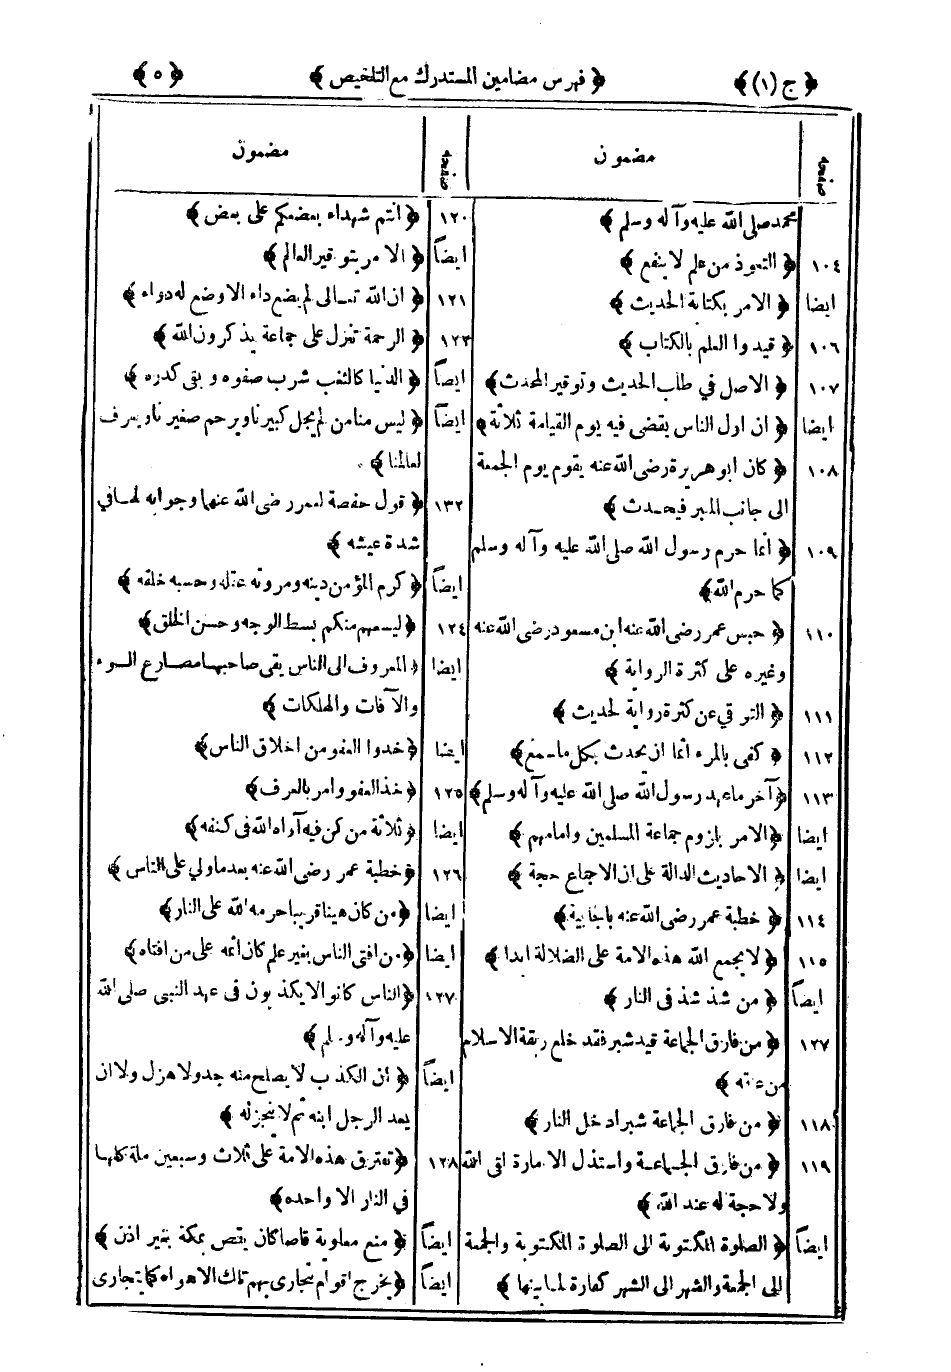 ﴿ ج (١) ﴾ ﴿ فهرس مضامين المستدرك مع التلخيص ﴾ ﴿ ٥ ﴾
صفحه مضمون
محمد صلى الله عليه وآله وسلم
١٠٤ ﴿ التعوذ من علم لا ينفع ﴾
ايضا ﴿ الامر بكتابة الحديث ﴾
١٠٦ ﴿ قيدوا العلم بالكتاب ﴾
١٠٧ ﴿ الاصل في طلب الحديث وتوقير المحدث ﴾
ايضا ﴿ ان اول الناس يقضى فيه يوم القيامة ثلاثة ﴾
١٠٨ ﴿ كان ابوهريرة رضى الله عنه يقوم يوم الجمعة
الى جانب المنبر فيحدث ﴾
١٠٩ ﴿ انما حرم رسول الله صلى الله عليه وآله وسلم
كما حرم الله ﴾
١١٠ ﴿ حبس عمر رضى الله عنه ابن مسعود رضى الله عنه
وغيره على كثرة الرواية ﴾
١١١ ﴿ التوقي عن كثرة رواية لحديث ﴾
١١٢ ﴿ كفى بالمرء اثما ان يحدث بكل ما سمع ﴾
١١٣ ﴿ آخر ما عهد رسول الله صلى الله عليه وآله وسلم ﴾
ايضا ﴿ الامر بلزوم جماعة المسلمين وامامهم ﴾
ايضا ﴿ الاحاديث الدالة على ان الاجماع حجة ﴾
١١٤ ﴿ خطبة عمر رضى الله عنه بالجابية ﴾
١١٥ ﴿ لا يجمع الله هذه الامة على الضلالة ابدا ﴾
ايضاً ﴿ من شذ شذ فى النار ﴾
١٢٧ ﴿ من فارق الجماعة قيد شبر فقد خلع ربقة الاسلام
من عنقه ﴾
١١٨ ﴿ من فارق الجماعة شبرا دخل النار ﴾
١١٩ ﴿ من فارق الجماعة واستذل الامارة لقى الله
ولا حجة له عند الله ﴾
ايضاً ﴿ الصلوة المكتوبة الى الصلوة المكتوبة والجمعة
الى الجمعة والشهر الى الشهر كفارة لما بينها ﴾
صفحه مضمون
١٢٠ ﴿ انتم شهداء بعضكم على بعض ﴾
ايضاً ﴿ الامر بتوقير العالم ﴾
١٢١ ﴿ ان الله تعالى لم يضع داء الا وضع له دواء ﴾
١٢٢ ﴿ الرحمة تنزل على جماعة يذكرون الله ﴾
ايضاً ﴿ الدنيا كالثغب شرب صفوه وبقى كدره ﴾
ايضاً ﴿ ليس منا من لم يجل كبيرنا ويرحم صغيرنا ويعرف
لعالمنا ﴾
١٣٢ ﴿ قول حفصة لعمر رضى الله عنهما وجوابه لها في
شدة عيشه ﴾
ايضاً ﴿ كرم المؤمن دينه ومروته عقله وحسبه خلقه ﴾
١٢٤ ﴿ ليسعهم منكم بسط الوجه وحسن الخلق ﴾
ايضا ﴿ المعروف الى الناس يقى صاحبها مصارع السوء
والآفات والهلكات ﴾
ايضا ﴿ خذوا العفو من اخلاق الناس ﴾
١٢٥ ﴿ خذ العفو وامر بالعرف ﴾
ايضا ﴿ ثلاثة من كن فيه آواه الله فى كنفه ﴾
١٢٦ ﴿ خطبة عمر رضى الله عنه بعد ما ولي على الناس ﴾
ايضا ﴿ من كان هينا قريبا حرمه الله على النار ﴾
ايضا ﴿ من افتى الناس بغير علم كان اثمه على من افتاه ﴾
١٢٧ ﴿ الناس كانوا لا يكذبون فى عهد النبى صلى الله
عليه وآله وسلم ﴾
ايضاً ﴿ أن الكذب لا يصلح منه جد ولا هزل ولا ان
يعد الرجل ابنه ثم لا ينجزله ﴾
١٢٨ ﴿ تفترق هذه الامة على ثلاث وسبعين ملة كلها
في النار الا واحده ﴾
ايضاً ﴿ منع معاوية قاصا كان يقص بمكة بغير اذن ﴾
ايضاً ﴿ يخرج اقوام تتجارى بهم تلك الاهواء كما يتجارى